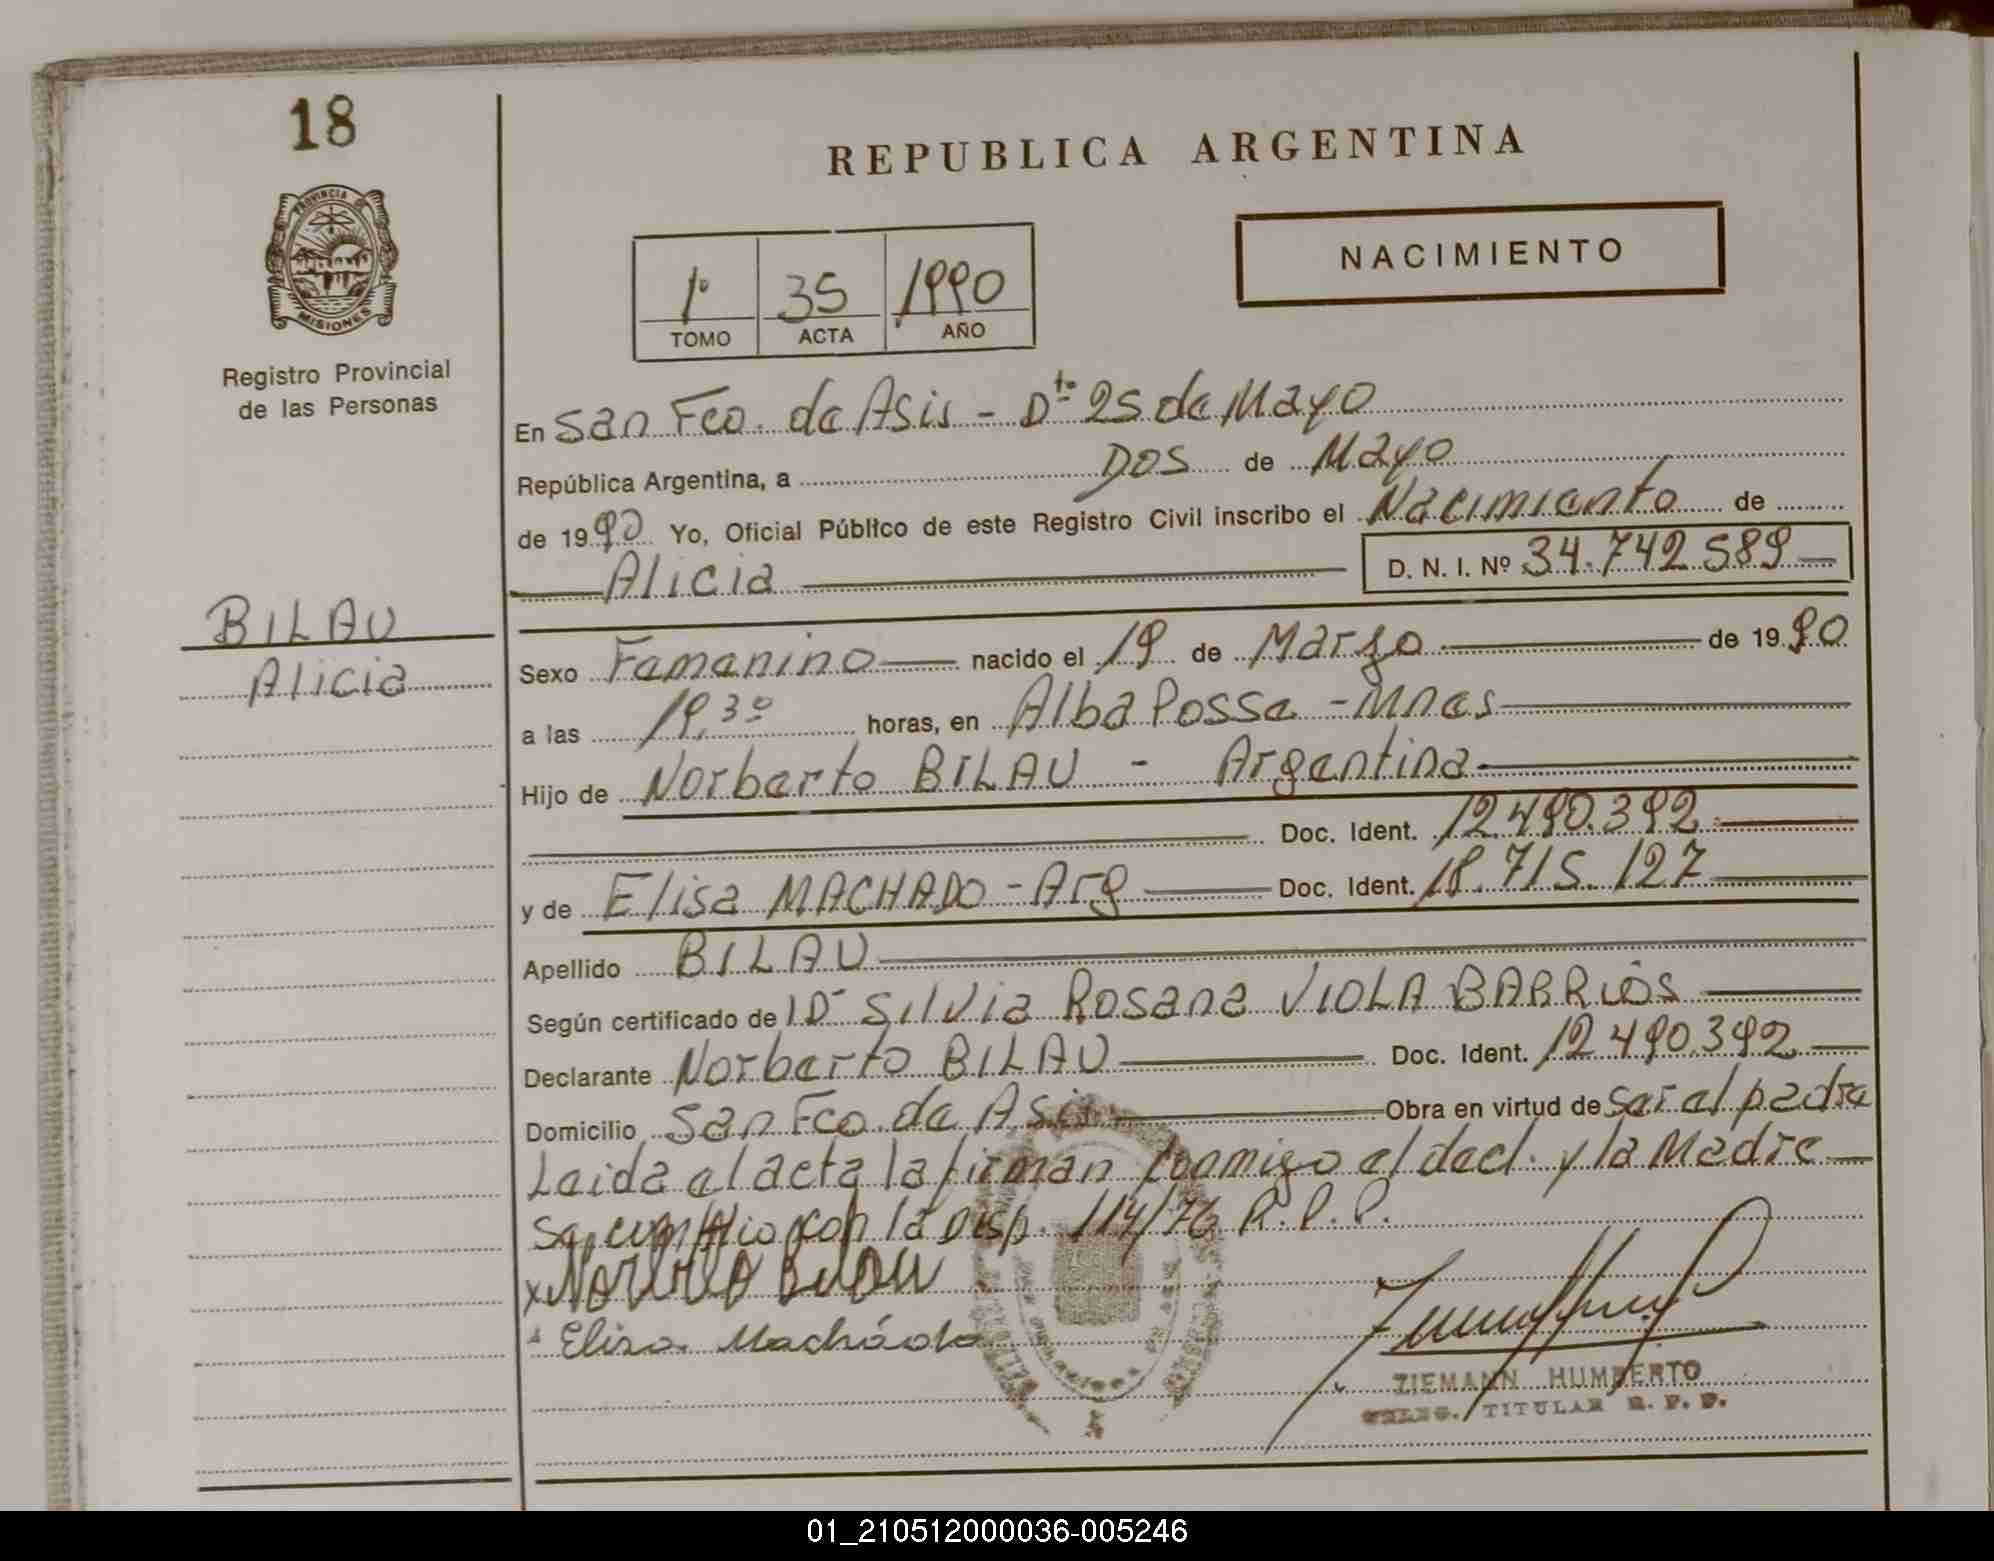 18
REPUBLICA ARGENTINA
PROVINCIA DE
MISIONES
Registro Provincial
de las Personas
1º 35 1990
TOMO ACTA AÑO
NACIMIENTO
En San Fco. de Asis - Dto 25 de Mayo
República Argentina, a Dos de Mayo
de 1990 Yo, Oficial Público de este Registro Civil inscribo el Nacimiento de
Alicia D. N. I. Nº 34.742.589
BILAU
Alicia
Sexo Femenino nacido el 19 de Marzo de 1990
a las 19,30 horas, en Alba Posse - Mnes
Hijo de Norberto BILAU - Argentina
Doc. Ident. 12.490.392
y de Elisa MACHADO - Arg Doc. Ident. 18.715.127
Apellido BILAU
Según certificado de Silvia Rosana VIOLA BARRIOS
Declarante Norberto BILAU Doc. Ident. 12.490.392
Domicilio San Fco. de Asis Obra en virtud de ser el padre
Leida el acta la firman conmigo el decl. y la Madre
Se cumplio con la Disp. 114/76 R.P.P.
x Norberto Bilau
Elisa Machádo
ZIEMANN HUMBERTO
DELEG. TITULAR R. P. P.
01_210512000036-005246